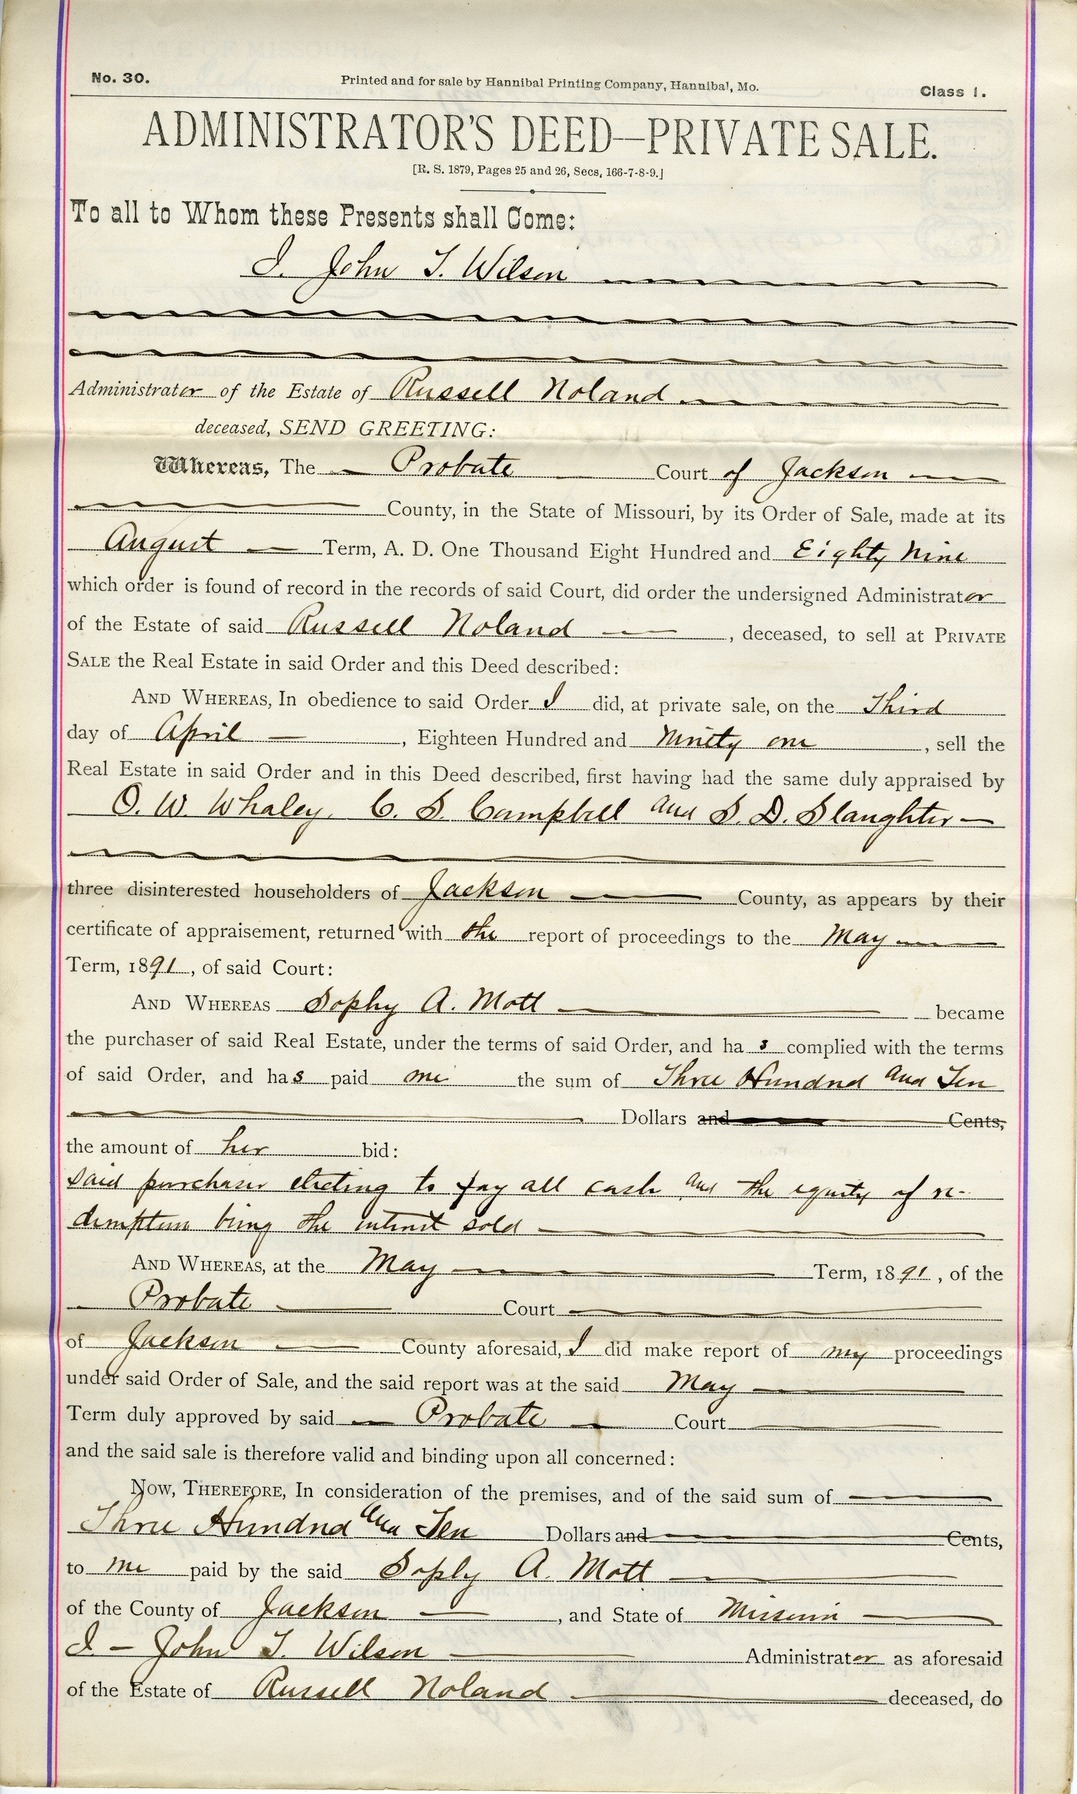 No. 30. Printed and for sale by Hannibal Printing Company, Hannibal, Mo. Class 1.
ADMINISTRATOR'S DEED—PRIVATE SALE.
[R. S. 1879, Pages 25 and 26, Secs, 166-7-8-9.]
To all to Whom these Presents shall Come:
I. John T. Wilson
Administrator of the Estate of Russell Noland
deceased, SEND GREETING:
Whereas, The Probate Court of Jackson
County, in the State of Missouri, by its Order of Sale, made at its
August Term, A. D. One Thousand Eight Hundred and Eighty Nine
which order is found of record in the records of said Court, did order the undersigned Administrator
of the Estate of said Russell Noland, deceased, to sell at PRIVATE
SALE the Real Estate in said Order and this Deed described:
AND WHEREAS, In obedience to said Order I did, at private sale, on the Third
day of April, Eighteen Hundred and Ninety one, sell the
Real Estate in said Order and in this Deed described, first having had the same duly appraised by
O. W. Whaley, C. S. Campbell and S. D. Slaughter
three disinterested householders of Jackson County, as appears by their
certificate of appraisement, returned with the report of proceedings to the May
Term, 1891, of said Court:
AND WHEREAS Sophy A. Mott became
the purchaser of said Real Estate, under the terms of said Order, and has complied with the terms
of said Order, and has paid me the sum of Three Hundred and Ten
Dollars and Cents,
the amount of her bid:
said purchaser electing to pay all cash and the equity of re-
demption being the interest sold
AND WHEREAS, at the May Term, 1891, of the
Probate Court
of Jackson County aforesaid, I did make report of my proceedings
under said Order of Sale, and the said report was at the said May
Term duly approved by said Probate Court
and the said sale is therefore valid and binding upon all concerned:
NOW, THEREFORE, In consideration of the premises, and of the said sum of
Three Hundred and Ten Dollars and Cents,
to me paid by the said Sophy A. Mott
of the County of Jackson, and State of Missouri
I - John T. Wilson Administrator as aforesaid
of the Estate of Russell Noland deceased, do